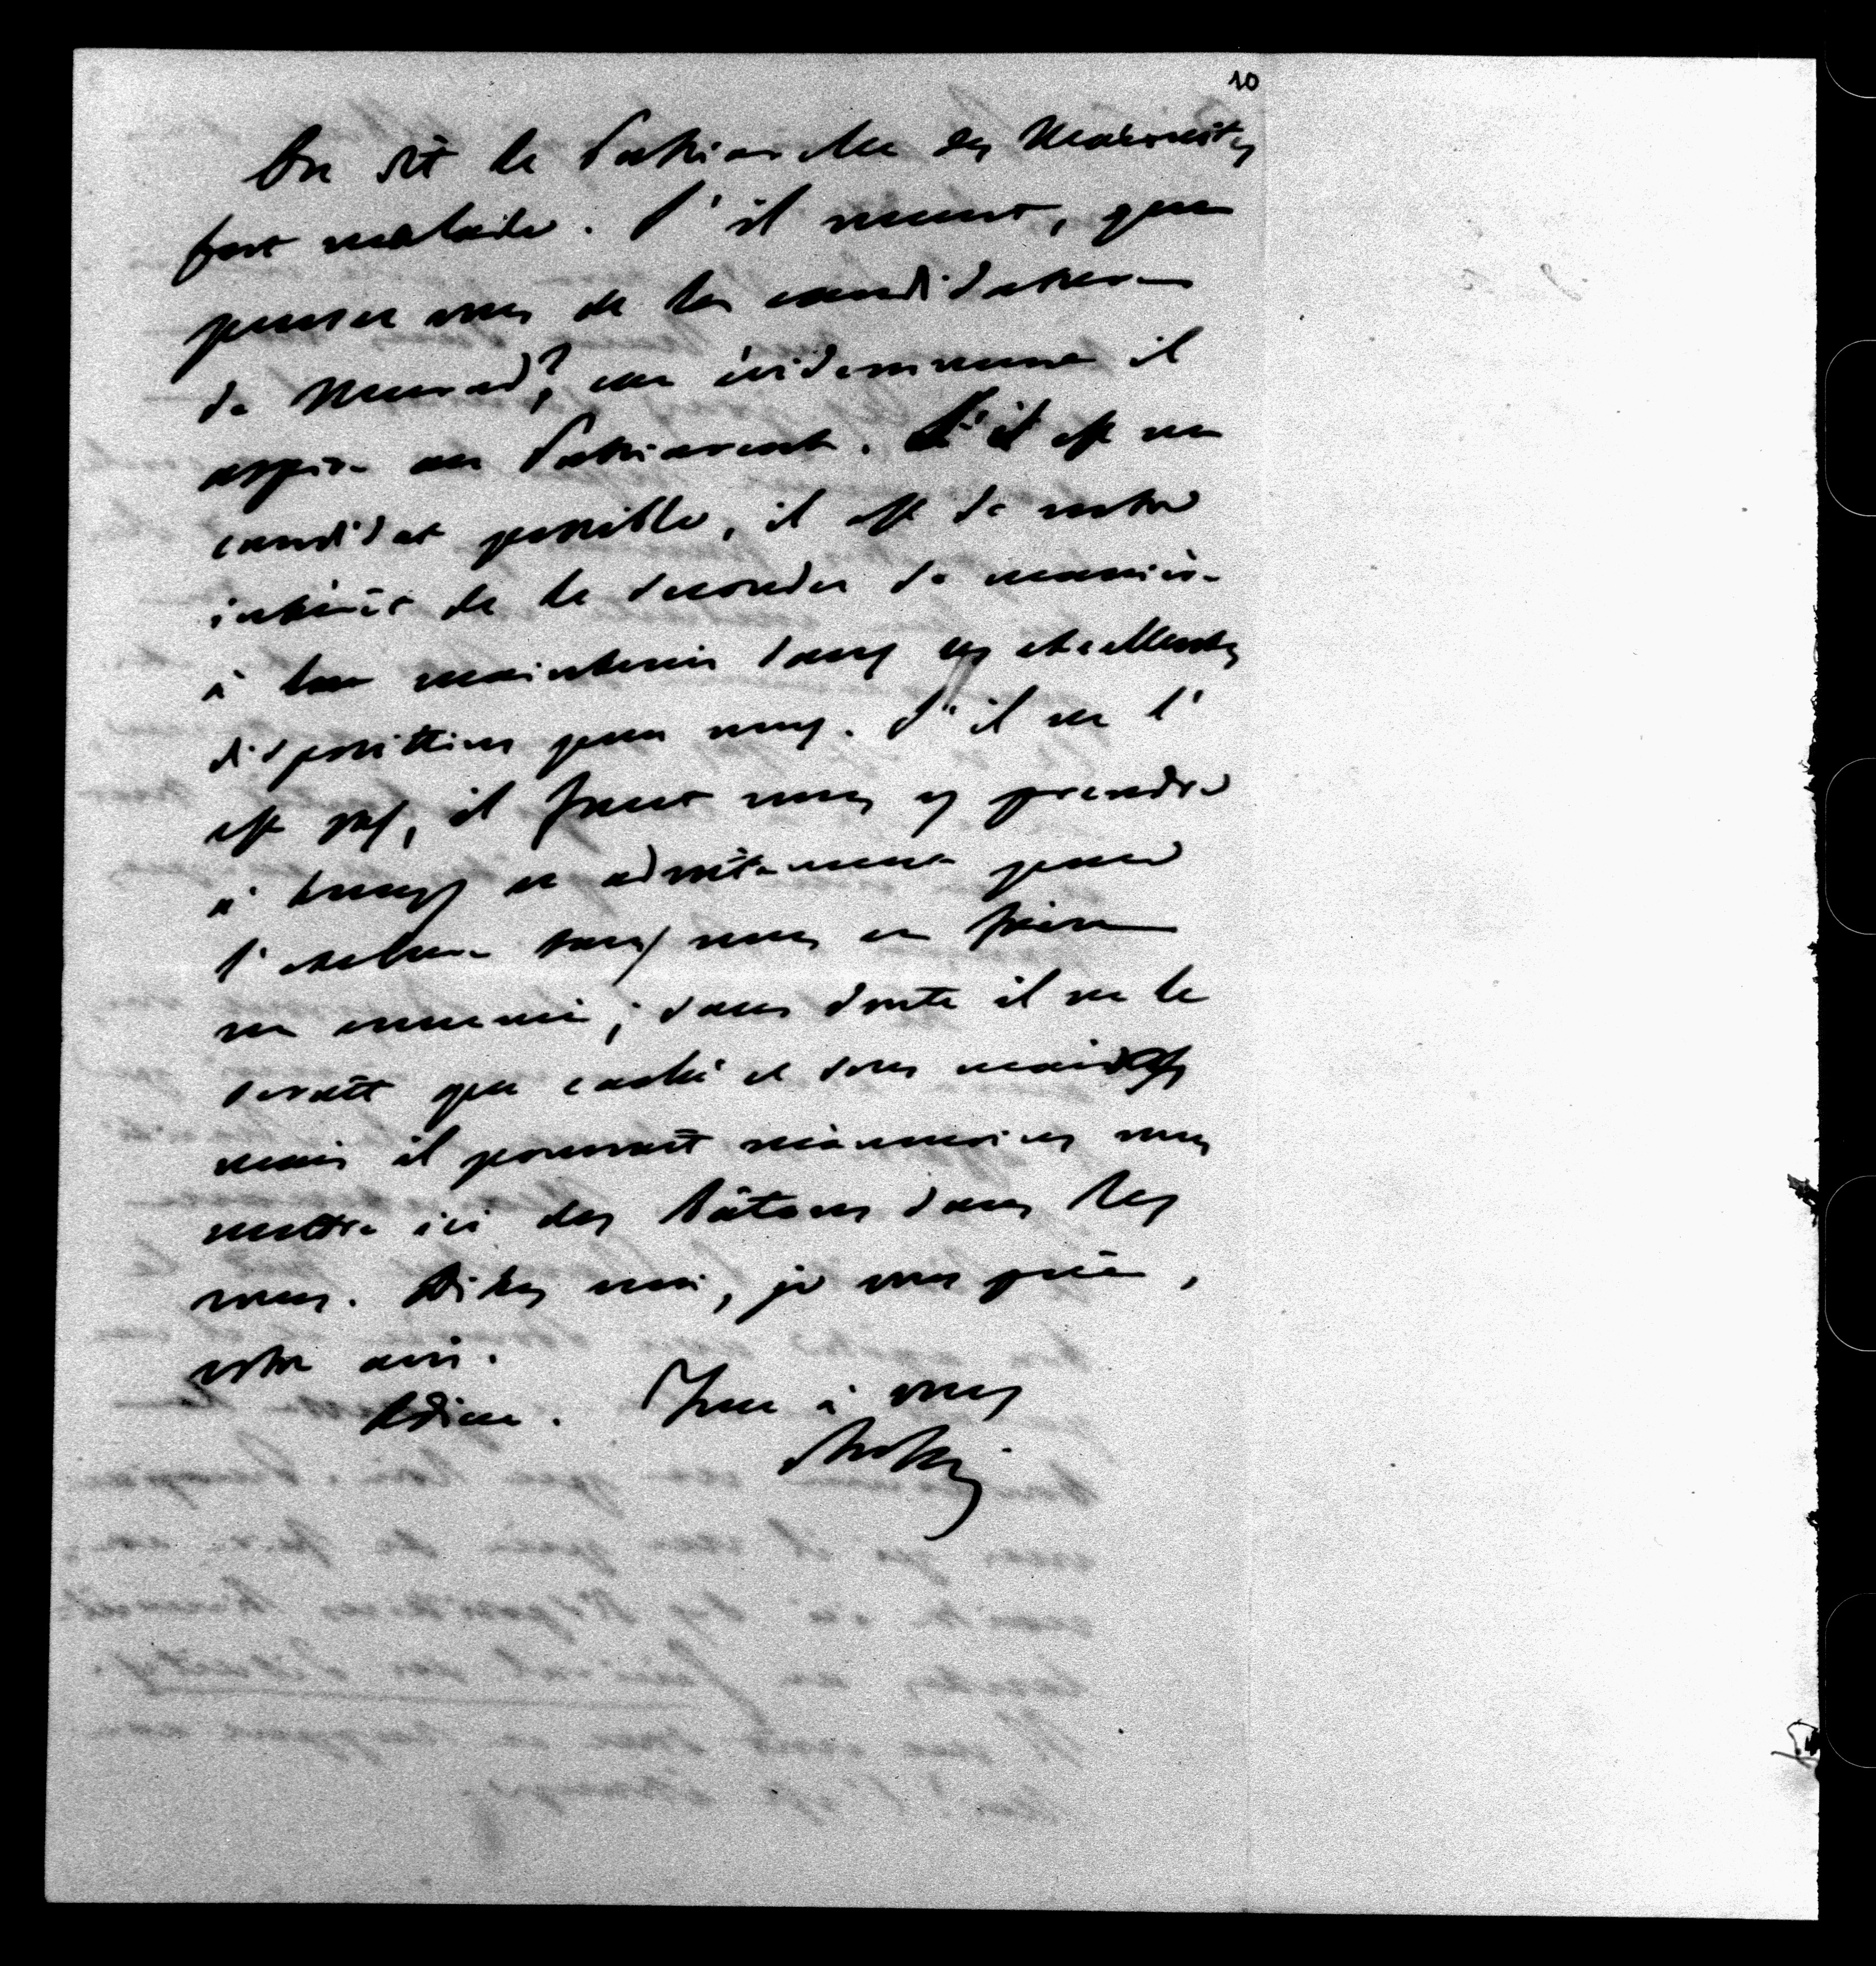 10
On dit le Patriarche des Maronites
fort malade. S'il meurt, que
pensez vous de la candidature
de Murad?, car évidemment il
aspire au Patriarcat. S'il est un
candidat possible, il est de notre
intérêt de le seconder de manière
à le maintenir dans ses excellentes
dispositions pour nous. S'il ne l'
est pas, il faut nous y prendre
à temps et adroitement pour
l'exclure sans nous en faire
un ennemi; sans doute il ne le
serait que caché et sous main
mais il pourrait néanmoins nous
mettre ici des bâtons dans les
roues. Dites moi, je vous prie,
votre avis.
Adieu. Tout à vous